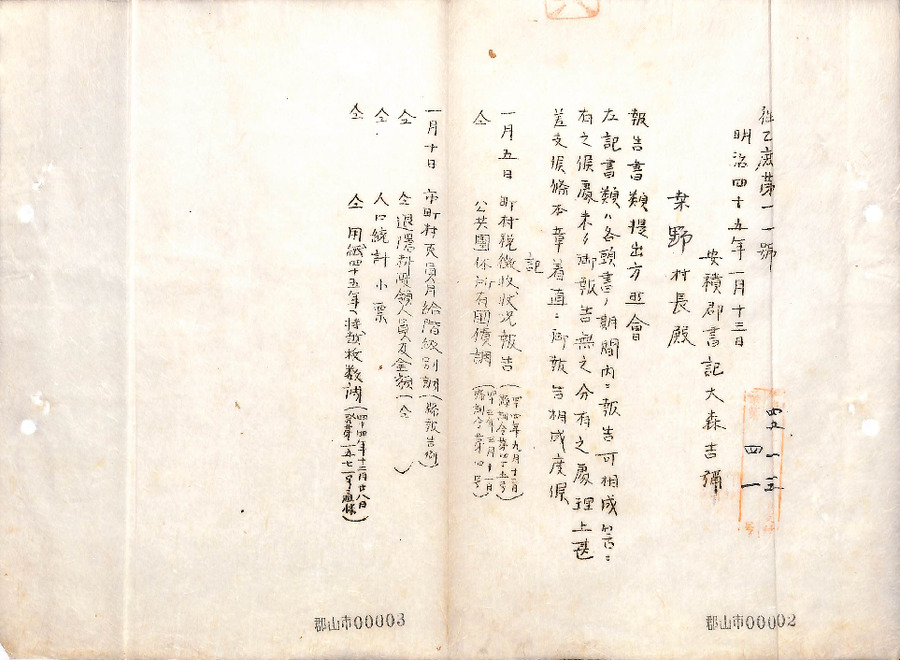 乙庶第一一號
明治四十五年一月十三日
安積郡書記大森吉彌
桒野村長殿
報告書類提出方照會
左記書類ハ各頭書ノ期間内ニ報告可相成筈ニ
有之候處未タ御報告無之分有之處理上甚
差支候條本章着直ニ御報告相成度候
記
一月五日 町村税徴收状况報告(四十四年九月十二日縣訓令第四十五号)
仝 公共團体所有國債調
一月十日 市町村吏員月給階級別調(縣報告例)
仝 仝退隱料受領人員及金額(仝)
仝 人口統計小票
仝 仝用紙四十五年ヘ持越枚数調(四十四年十二月廿八日
四五 一 一五
四一
郡山市00002
郡山市00003